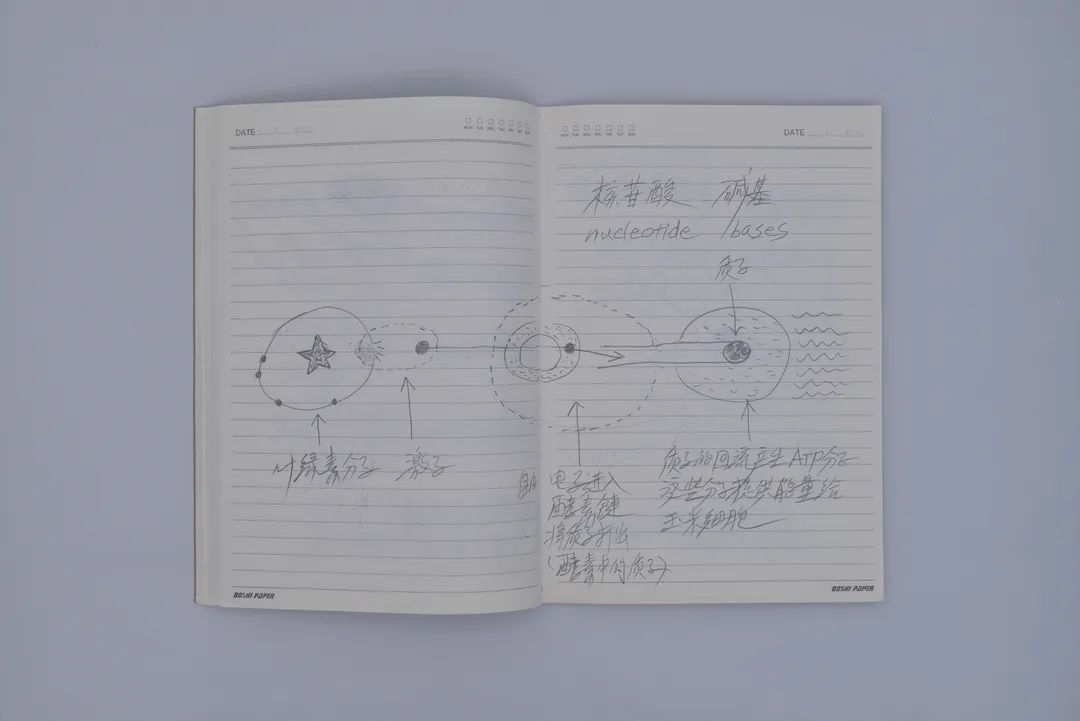 DATE
MON TUE WED THU FRI SAT SUN
叶绿素分子
激子
BOSHI PAPER
MON TUE WED THU FRI SAT SUN
DATE
核苷酸 碱基
nucleotide /bases
质子
自由电子进入
酵素键
将质子打出
(酵素中的质子)
质子的回流产生ATP分子
这些分子提供能量给
玉米细胞
BOSHI PAPER